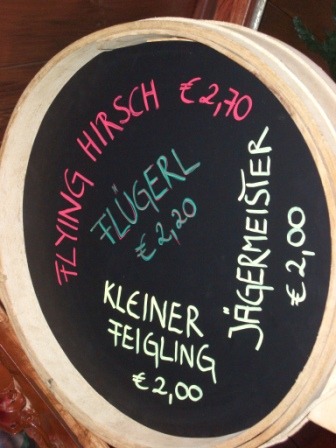 FLYING HIRSCH € 2,70
FLÜGERL
€ 2,20
KLEINER
FEIGLING
€ 2,00
JÄGERMEISTER
€ 2,00